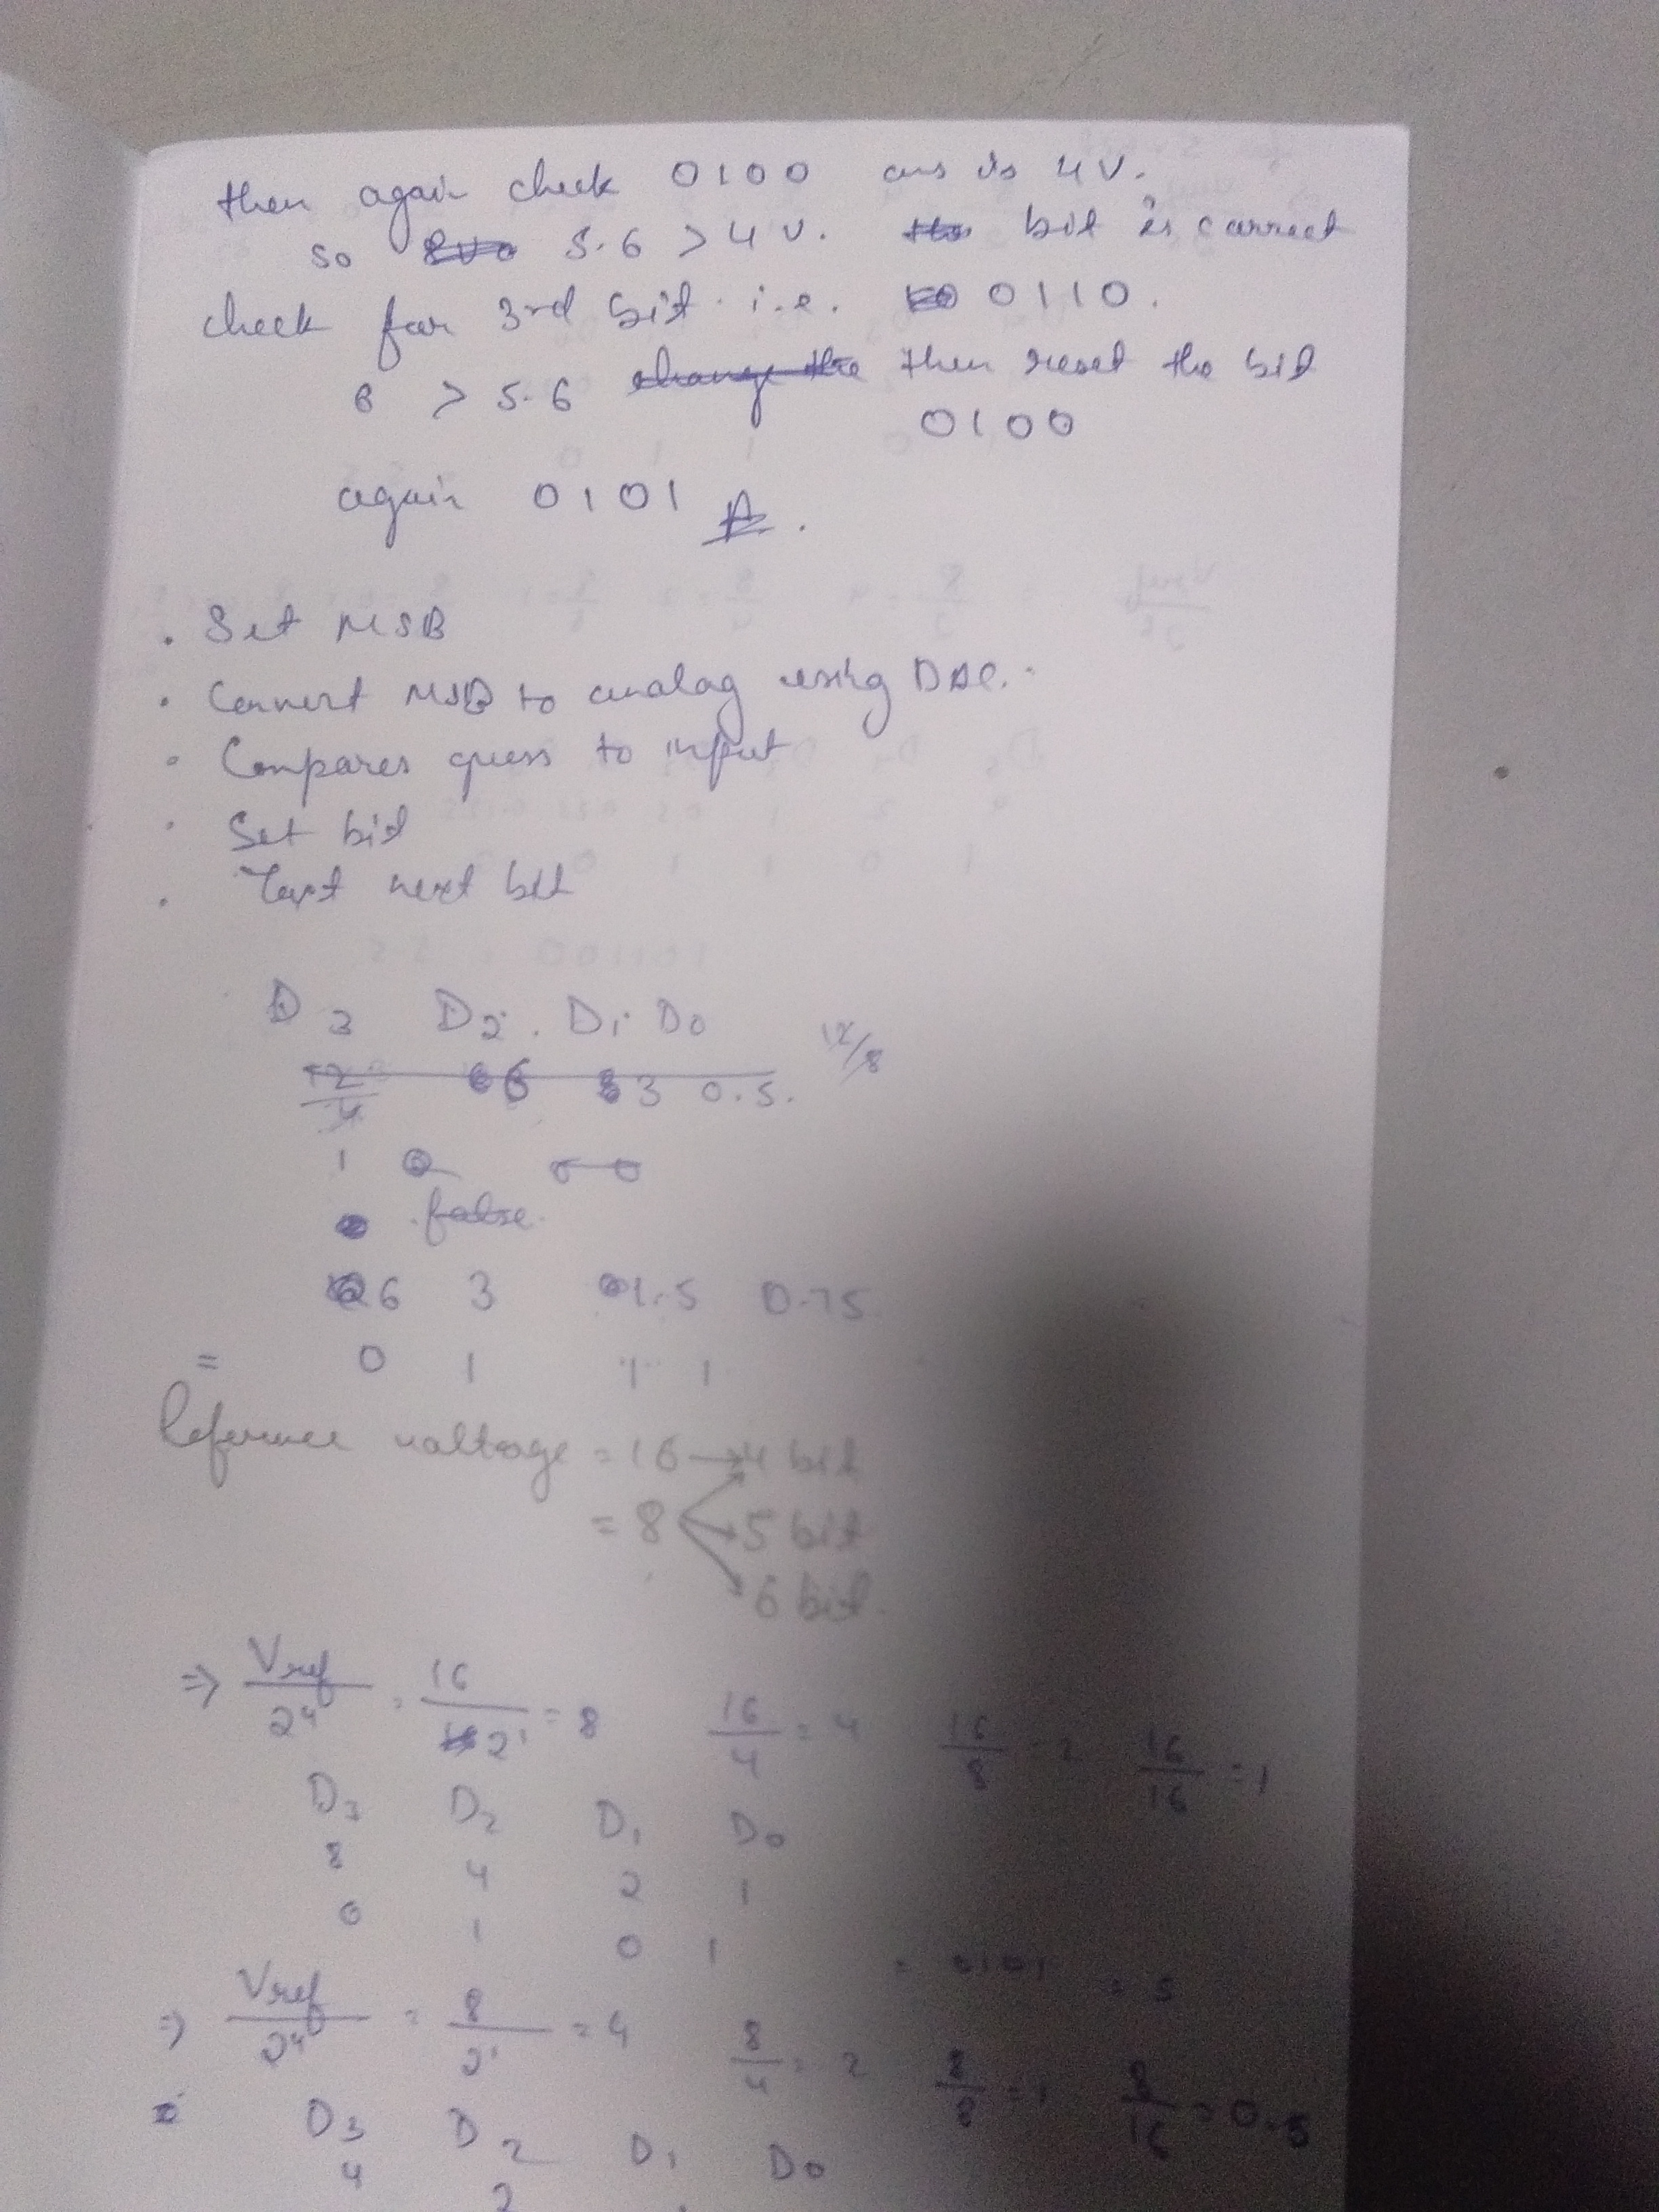 then again check 0100 ans is 4V.
so 5.6 > 4V. bit is correct
check for 3rd bit i.e. 0110.
6 > 5.6 change the then reset the bit
0100
again 0101
. Set MSB
. Convert MSB to analog using DAC.
. Compares guess to input
. Set bit
. Test next bit
D3 D2 . D1 D0
12/4 6 3 0.5. 12/8
1
false
6 3 1.5 0.75
= 0 1 1 1
Reference voltage = 16 → 4 bit
= 8 → 5 bit
6 bit
⇒ Vref/2⁴ = 16/2¹ = 8 16/4 = 4 16/8 = 2 16/16 = 1
D3 D2 D1 D0
8 4 2 1
0 1 0 1 = 0101 = 5
⇒ Vref/2⁴ = 8/2¹ = 4 8/4 = 2 8/8 = 1 8/16 = 0.5
D3 D2 D1 D0
4 2